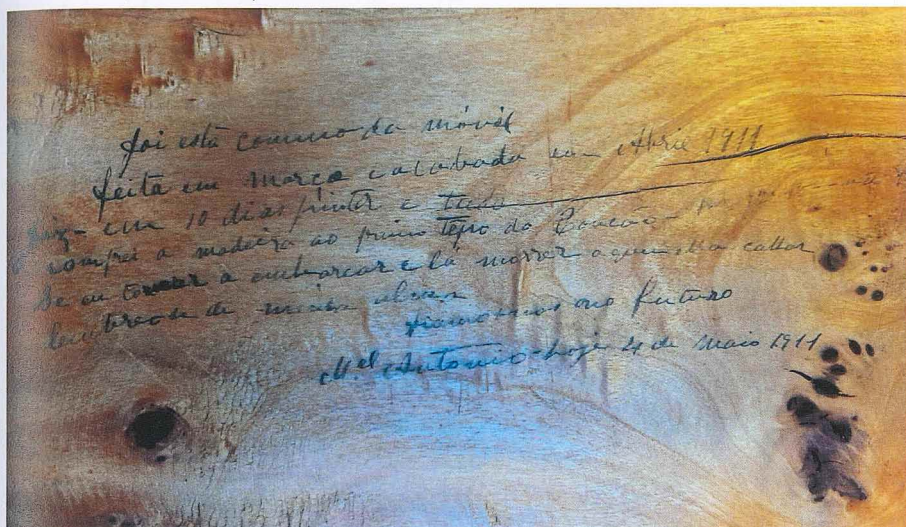 foi esta commoda móvil
feita em março e acabada em Abril 1911
fiz- em 10 dias pintei e tudo
comprei a madeira ao primo Tejo do
Se eu tornar a embarcar e lá morrer a quem ella calhar
lembrece de minha alma
fiamo-nos no futuro
M.el Antonio - hoje 4 de Maio 1911